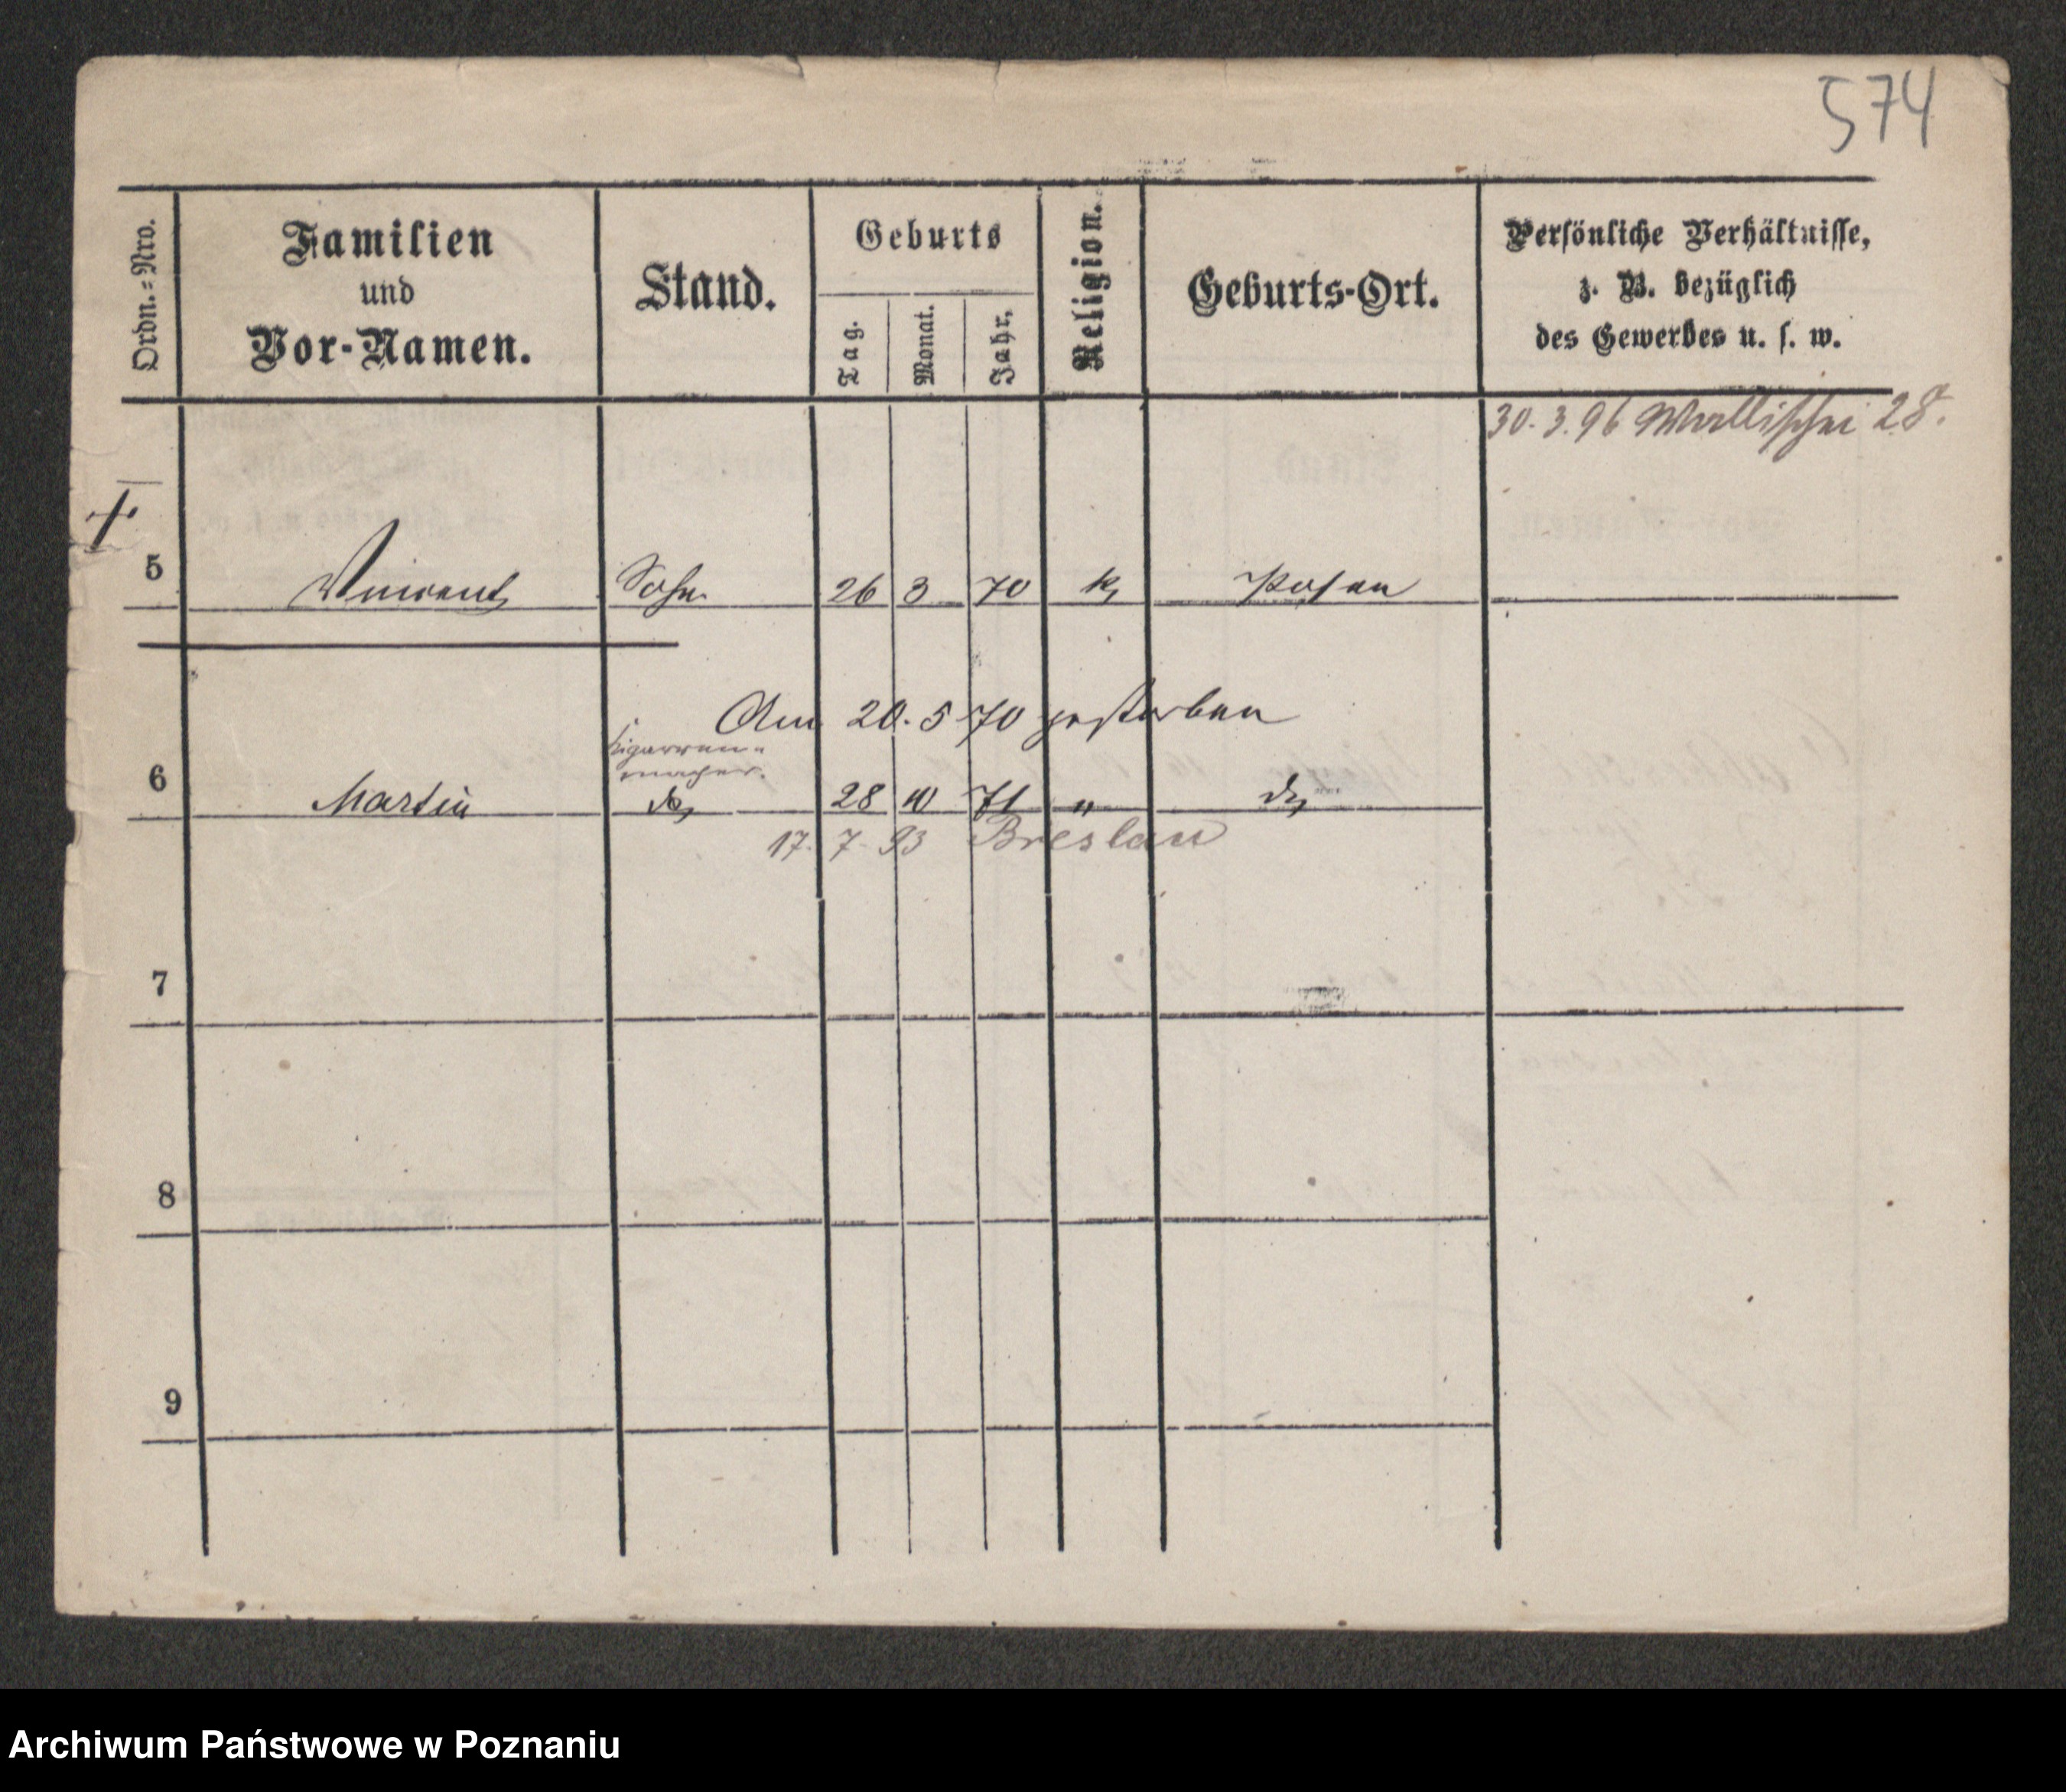 574
Ordn.=Nro.
Familien
und
Vor-Namen.
Stand.
Geburts
Tag.
Monat.
Jahr.
Religion.
Geburts-Ort.
Persönliche Verhältnisse,
z. B. bezüglich
des Gewerbes u. s. w.
30. 3. 96 Wallischei 28.
†
5 Vincent Sohn 26 3 70 k Posen
Am 20. 5 70 gestorben
Cigarren-
macher.
6 Martin do 28 10 71 " do
17. 7. 93 Breslau
7
8
9
Archiwum Państwowe w Poznaniu